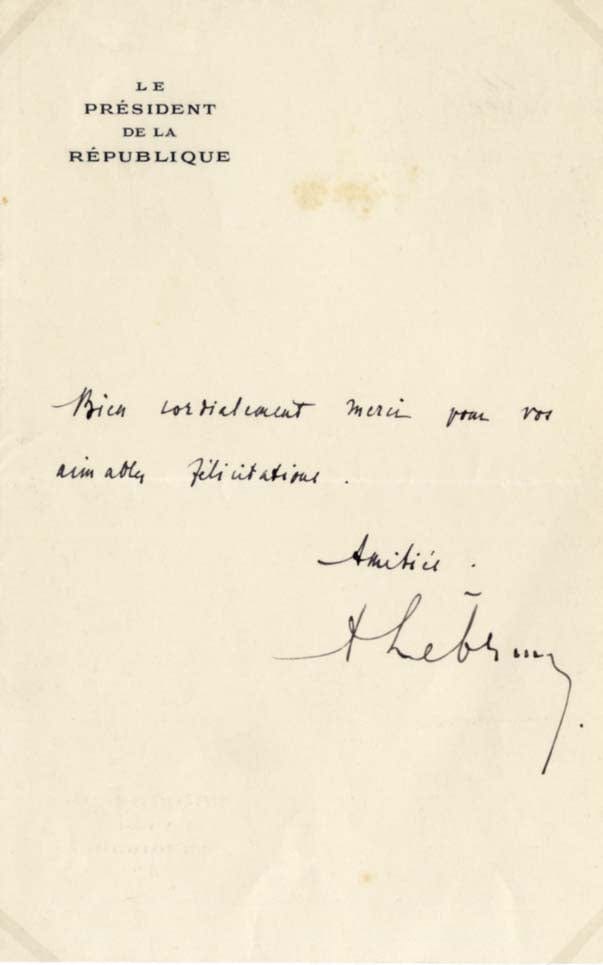 LE
PRÉSIDENT
DE LA
RÉPUBLIQUE
Bien cordialement merci pour vos
aimables félicitations.
Amitiés.
A Lebrun